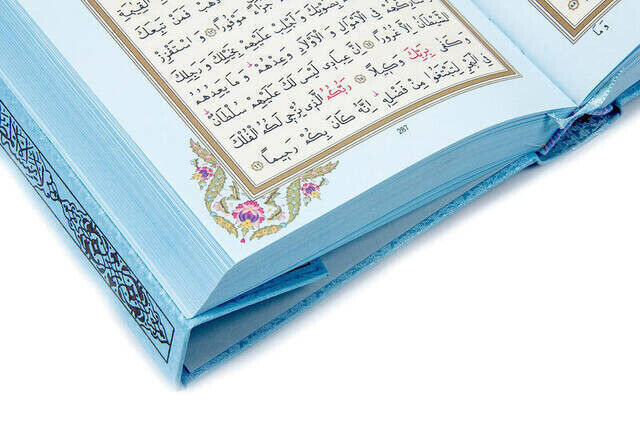 فَمَنْ تَبِعَكَ
جَزَاءً مَوْفُورًا ﴿٦٣﴾ وَاسْتَفْزِزْ
بِصَوْتِكَ وَاَجْلِبْ عَلَيْهِمْ بِخَيْلِكَ وَرَجِلِكَ
فِي الْاَمْوَالِ وَالْاَوْلَادِ وَعِدْهُمْ وَمَا يَعِدُهُمُ
الشَّيْطَانُ اِلَّا غُرُورًا ﴿٦٤﴾ اِنَّ عِبَادِي لَيْسَ لَكَ عَلَيْهِمْ سُلْطَانٌ
وَكَفٰى بِرَبِّكَ وَكِيلًا ﴿٦٥﴾ رَبُّكُمُ الَّذِي يُزْجِي لَكُمُ الْفُلْكَ
فِي الْبَحْرِ لِتَبْتَغُوا مِنْ فَضْلِهِ اِنَّهُ كَانَ بِكُمْ رَحِيمًا ﴿٦٦﴾
287
وَمَا